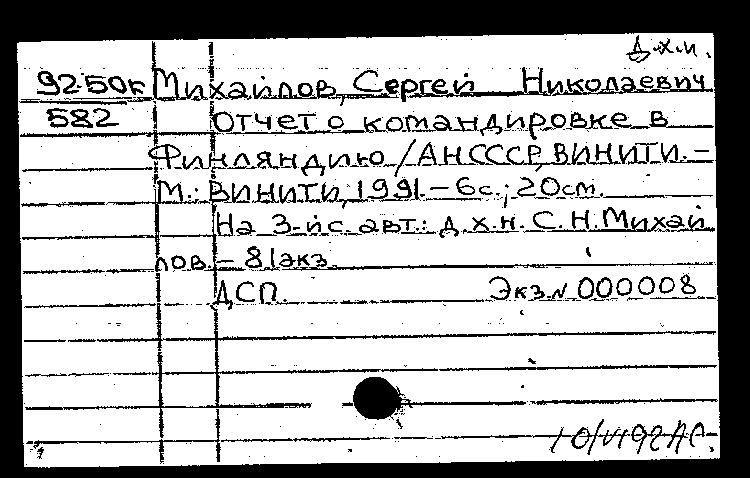 Д.х.н.
92-50к Михайлов, Сергей Николаевич
582 Отчет о командировке в
Финляндию / АНСССР, ВИНИТИ. –
М.: ВИНИТИ, 1991. – 6с.; 20см.
На 3-й с. авт.: д.х.н. С.Н. Михай
лов. – 81экз.
ДСП. Экз.N 000008